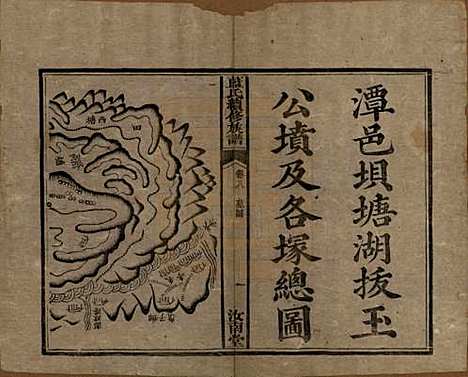 潭邑垻塘湖拔玉
公墳及各塚總圖
藍氏續修族譜
卷八
墓圖
一
汝南堂
西
塘
田